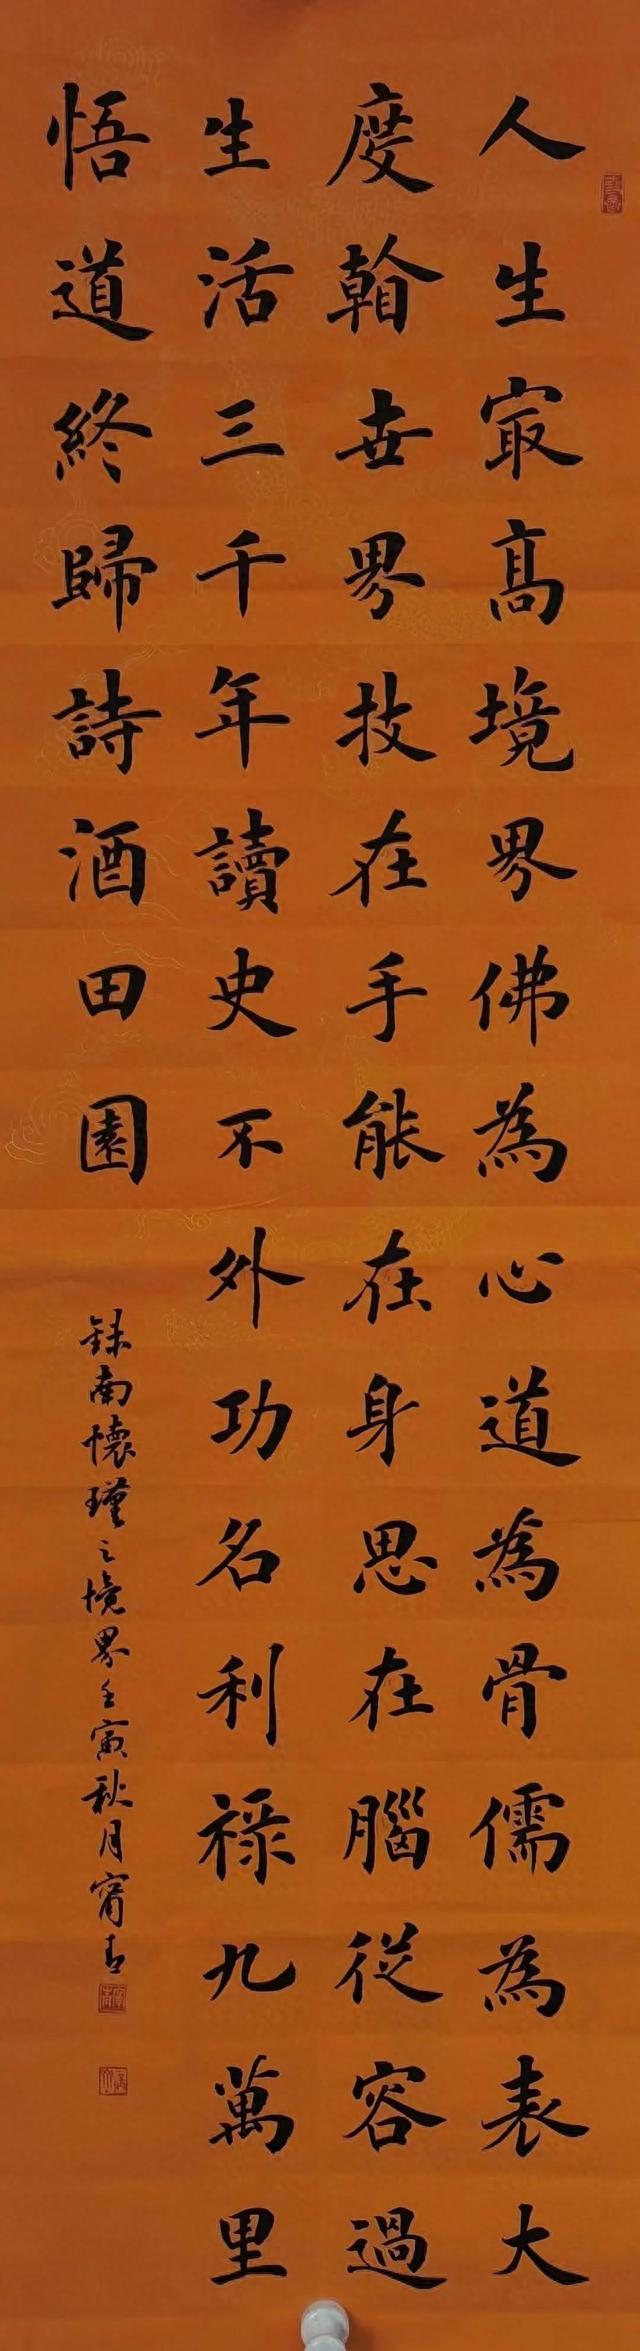 人生最高境界佛為心道為骨儒為表大
度看世界技在手能在身思在腦從容過
生活三千年讀史不外功名利祿九萬里
悟道終歸詩酒田園
錄南懷瑾之境界壬寅秋月甯古